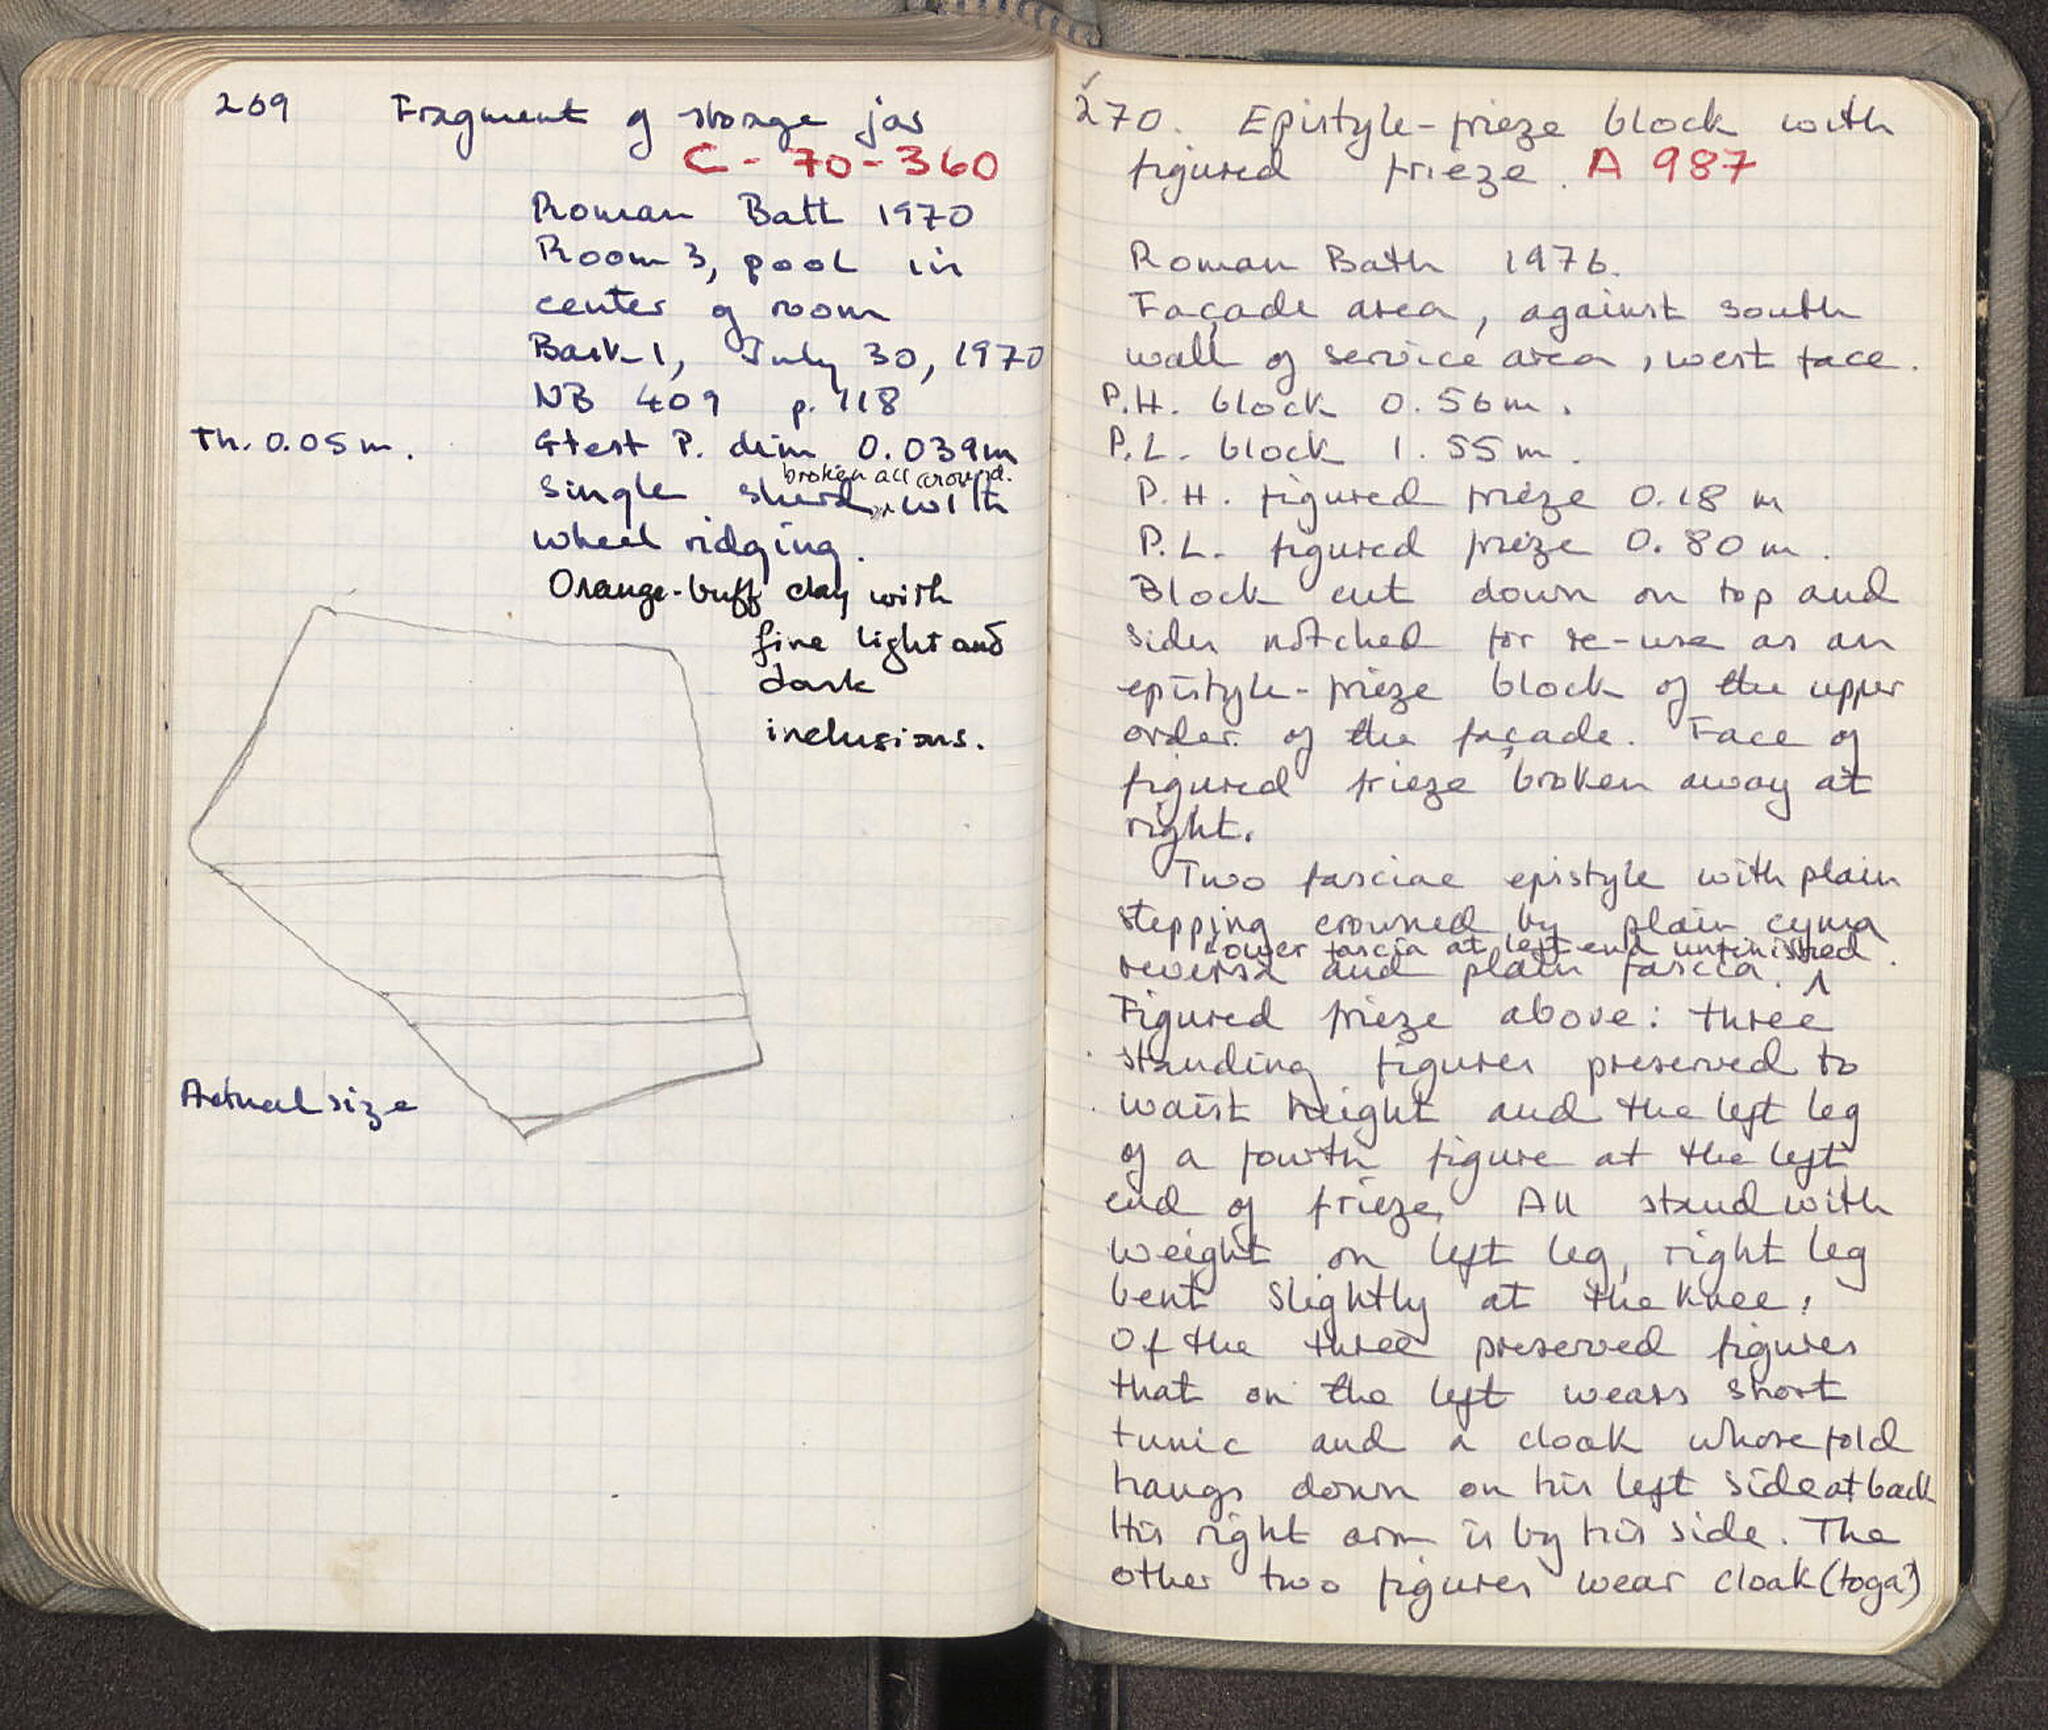 269 Fragment of storage jar
C - 70 - 360
Roman Bath 1970
Room 3, pool in
center of room
Bask 1, July 30, 1970
NB 409 p. 118
Th. 0.05 m. Gtest P. dim 0.039m
broken all around.
single sherd, with
wheel ridging.
Orange-buff clay with
fine light and
dark
inclusions.
Actual size
270. Epistyle-frieze block with
figured frieze. A 987
Roman Bath 1976.
Façade area, against south
wall of service area, west face.
P.H. block 0.56m.
P.L. block 1.55m.
P.H. figured frieze 0.18 m
P.L. figured frieze 0.80m.
Block cut down on top and
sides notched for re-use as an
epistyle-frieze block of the upper
order of the façade. Face of
figured frieze broken away at
right.
Two fasciae epistyle with plain
stepping crowned by plain cyma
Lower fascia at left end unfinished.
reversa and plain fascia. ^
Figured frieze above: three
standing figures preserved to
waist height and the left leg
of a fourth figure at the left
end of frieze. All stand with
weight on left leg, right leg
bent slightly at the knee.
Of the three preserved figures
that on the left wears short
tunic and a cloak whose fold
hangs down on his left side at back
His right arm is by his side. The
other two figures wear cloak (toga?)